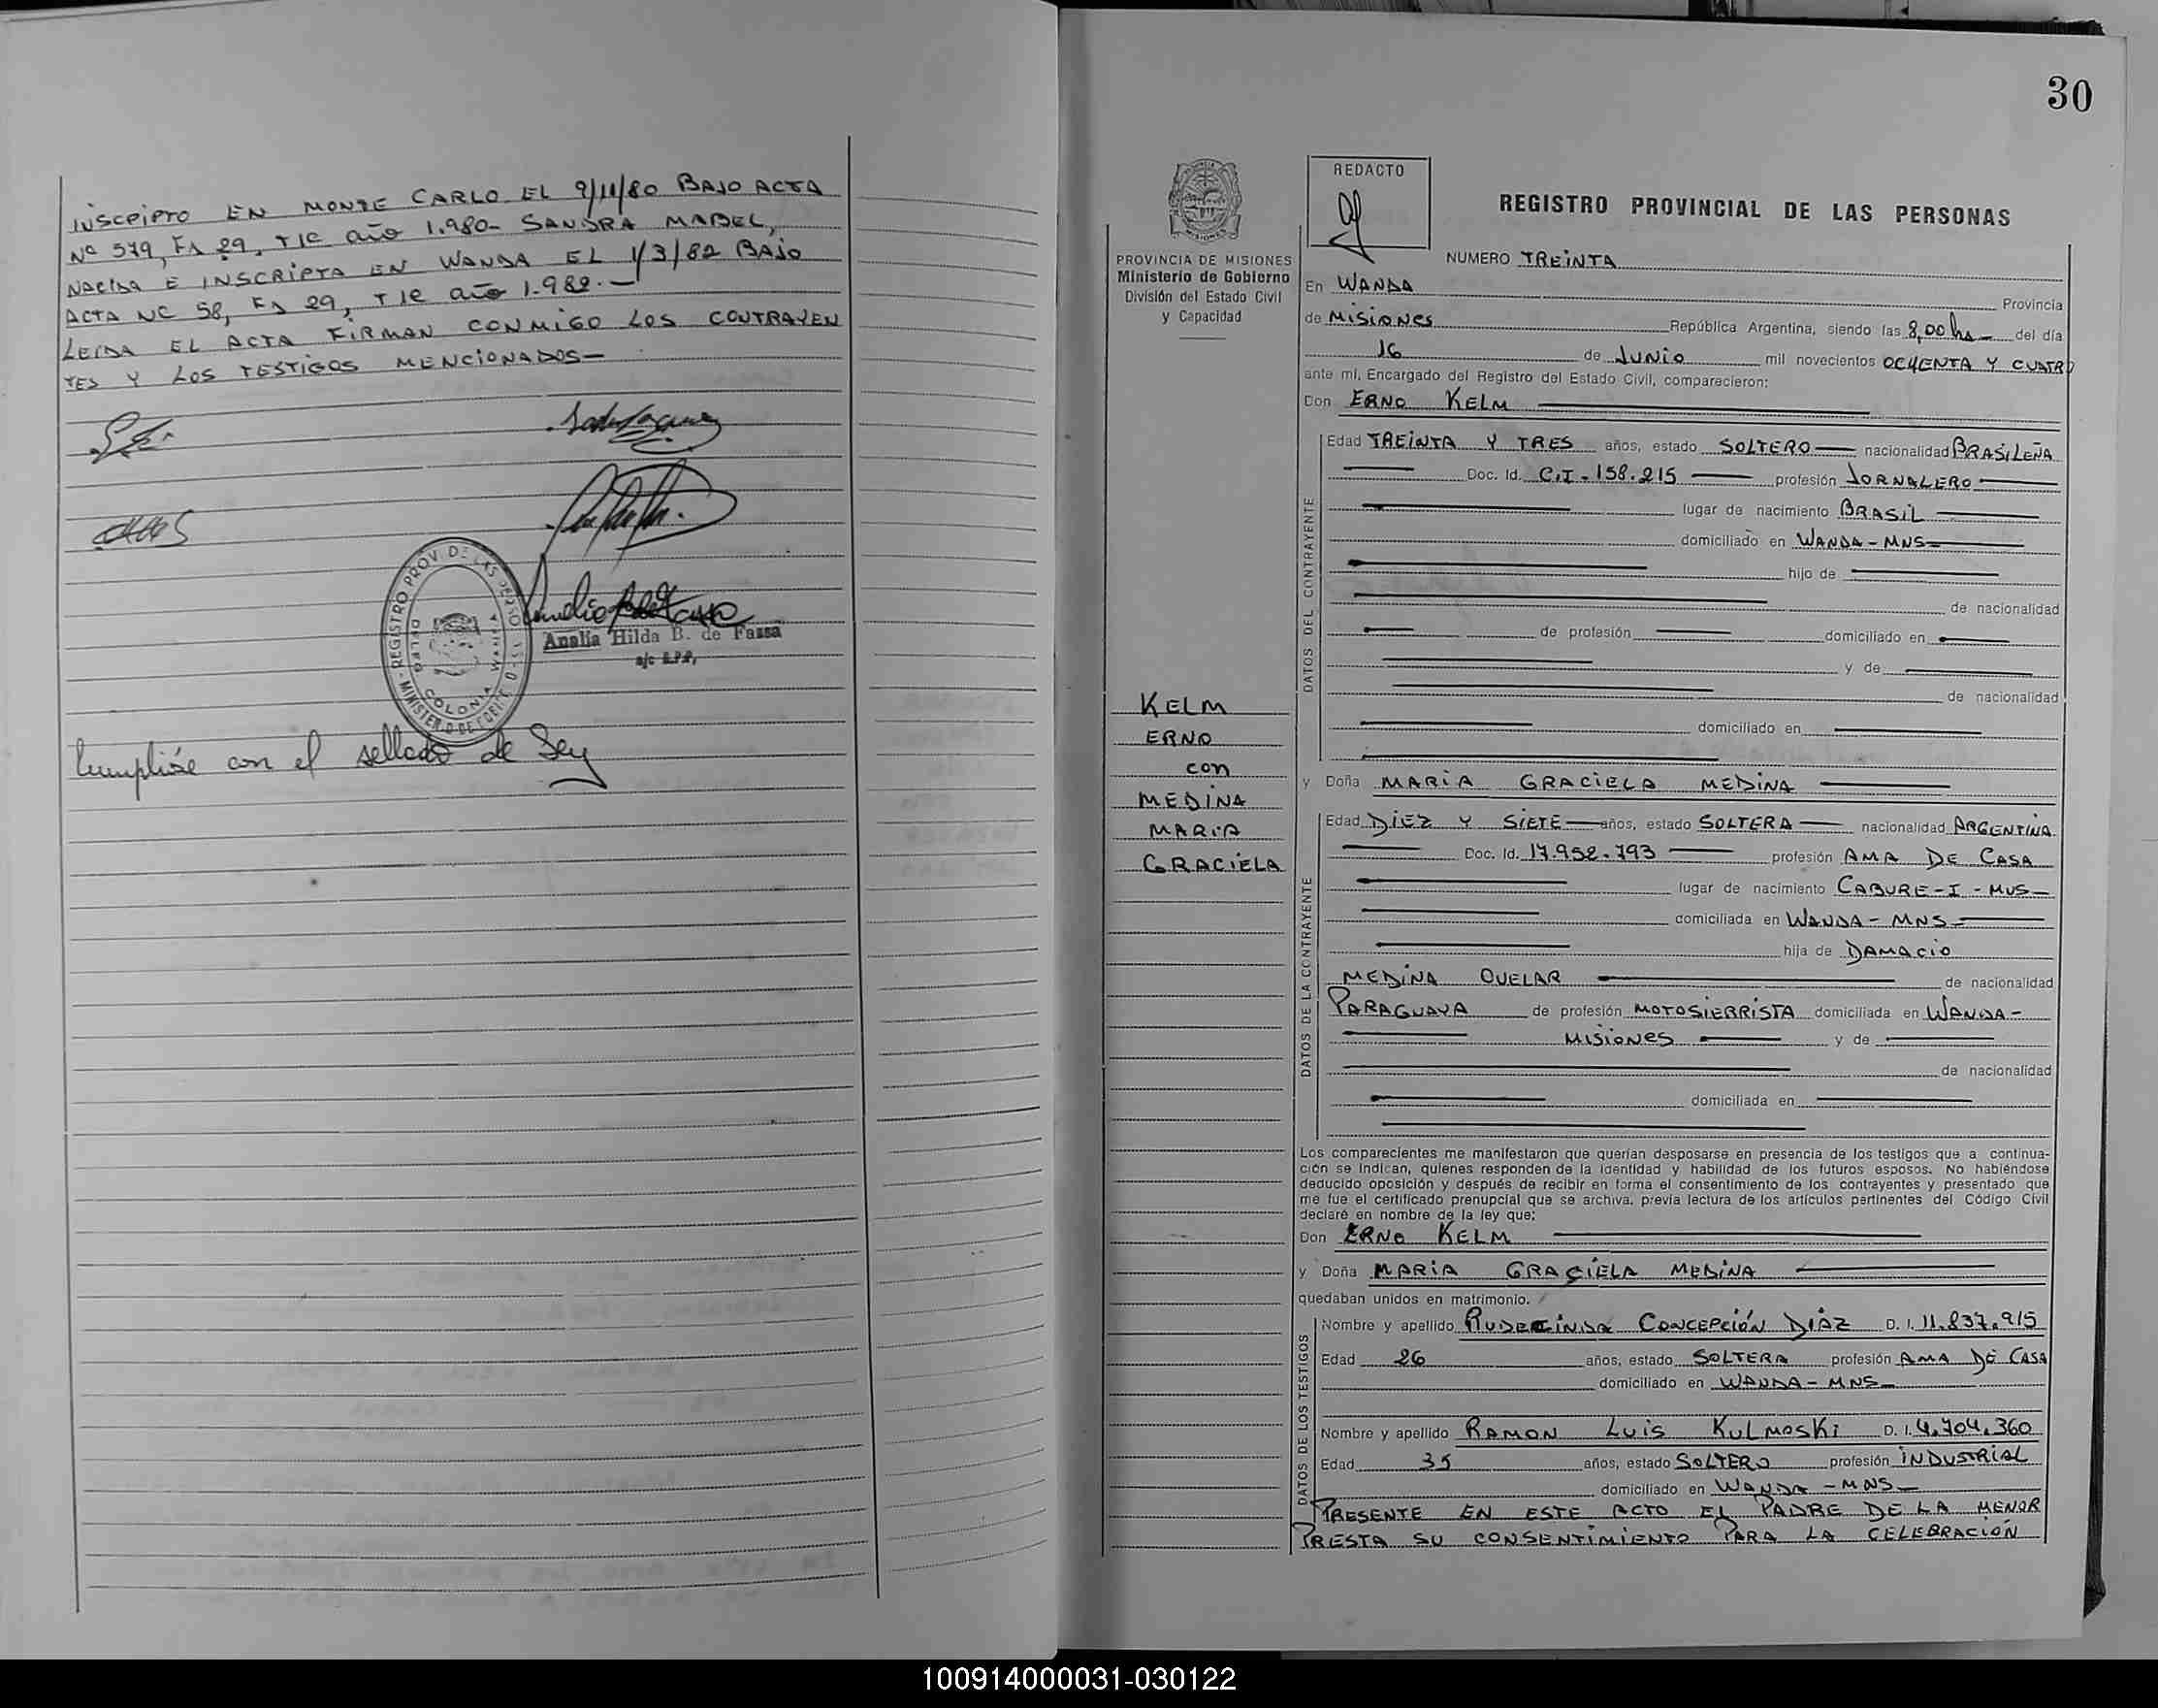 INSCRIPTO EN MONTE CARLO EL 9/11/80 BAJO ACTA
Nº 579, Fº 29, T 1º año 1.980- SANDRA MABEL,
NACIDA E INSCRIPTA EN WANDA EL 1/3/82 BAJO
ACTA Nº 58, Fº 29, T 1º año 1.982.-
LEIDA EL ACTA FIRMAN CONMIGO LOS CONTRAYEN
TES Y LOS TESTIGOS MENCIONADOS-
REGISTRO PROV. DE LAS PERSO
COLONIA WANDA
Analía Hilda B. de Fassa
a/c R.P.P.
Cumplióse con el sellado de Ley
30
REDACTO
REGISTRO PROVINCIAL DE LAS PERSONAS
PROVINCIA DE MISIONES
Ministerio de Gobierno
División del Estado Civil
y Capacidad
KELM
ERNO
con
MEDINA
MARIA
GRACIELA
NUMERO TREINTA
En WANDA Provincia
de MISIONES República Argentina, siendo las 8,00 hs del día
16 de JUNIO mil novecientos OCHENTA Y CUATRO
ante mi, Encargado del Registro del Estado Civil, comparecieron:
Don ERNO KELM
DATOS DEL CONTRAYENTE
Edad TREINTA Y TRES años, estado SOLTERO nacionalidad BRASILEÑA
Doc. Id. C.I - 158.215 profesión JORNALERO
lugar de nacimiento BRASIL
domiciliado en WANDA - MNS
hijo de
de nacionalidad
de profesión domiciliado en
y de
de nacionalidad
domiciliado en
y Doña MARIA GRACIELA MEDINA
DATOS DE LA CONTRAYENTE
Edad DIEZ Y SIETE años, estado SOLTERA nacionalidad ARGENTINA
Doc. Id. 17.952.793 profesión AMA DE CASA
lugar de nacimiento CABURE-I - MNS
domiciliada en WANDA - MNS
hija de DAMACIO
MEDINA OVELAR de nacionalidad
PARAGUAYA de profesión MOTOSIERRISTA domiciliada en WANDA-
MISIONES y de
de nacionalidad
domiciliada en
Los comparecientes me manifestaron que querían desposarse en presencia de los testigos que a continua-
ción se indican, quienes responden de la identidad y habilidad de los futuros esposos. No habiéndose
deducido oposición y después de recibir en forma el consentimiento de los contrayentes y presentado que
me fue el certificado prenupcial que se archiva, previa lectura de los artículos pertinentes del Código Civil
declaré en nombre de la ley que:
Don ERNO KELM
y Doña MARIA GRACIELA MEDINA
quedaban unidos en matrimonio.
DATOS DE LOS TESTIGOS
Nombre y apellido RUDECINDA CONCEPCIÓN DIAZ D. I. 11.837.915
Edad 26 años, estado SOLTERA profesión AMA DE CASA
domiciliado en WANDA - MNS
Nombre y apellido RAMON LUIS KULMOSKI D. I. 4.704.360
Edad 35 años, estado SOLTERO profesión INDUSTRIAL
domiciliado en WANDA - MNS
PRESENTE EN ESTE ACTO EL PADRE DE LA MENOR
PRESTA SU CONSENTIMIENTO PARA LA CELEBRACIÓN
100914000031-030122